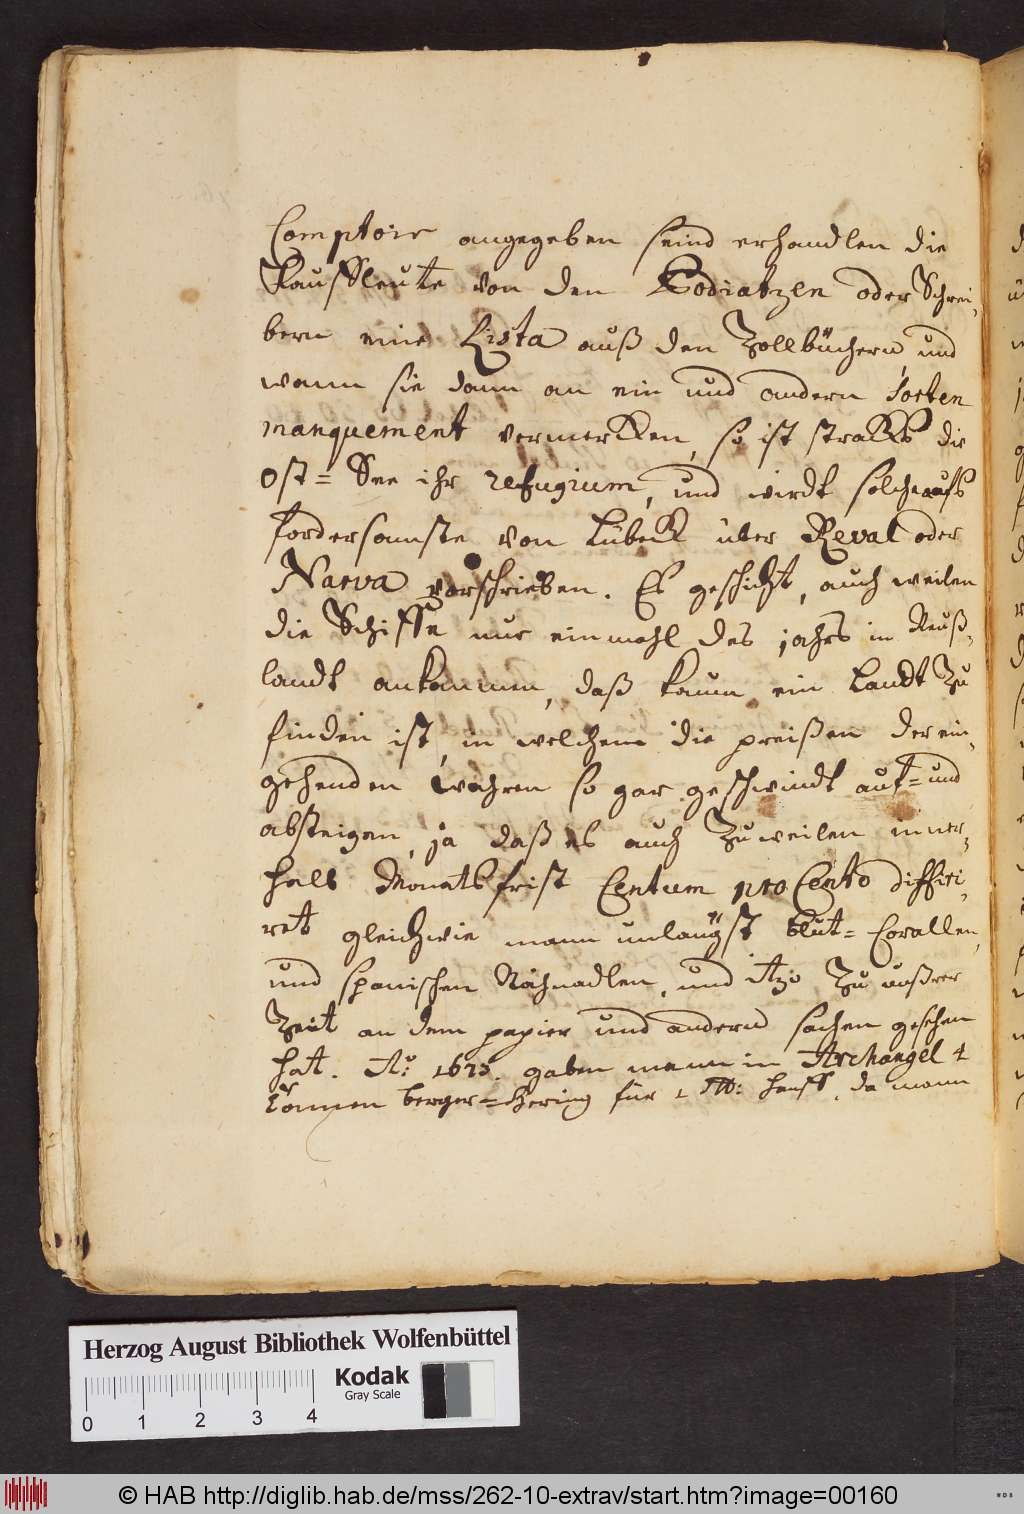 Comptoir angegeben seind erhandlen die
Kauffleute von den Podiatzen oder Schrei-
bern eine Lista auß den Zollbüchern, und
wann sie dann an ein und andern Sorten
manquement vermerkken, so ist strakks die
Ost= See ihr refugium, und wirdt solche aufs
fordersamste von Lübeck über Reval oder
Narva vorschrieben. Es geschicht, auch weilen
die Schiffe nur einmahl des jahrs in Reuß-
landt ankommen, daß kaum ein Landt zu
finden ist, in welchem die preißen der ein-
gehenden Wahren so gar geschwindt auf= und
absteigen, ja daß es auch zuweilen inner-
halb Monats frist Centum pro Cento differi-
ret gleichwie mann unlängst blut= Corallen,
und spanischen Nähnadlen, und itzo zu unßrer
Zeit an dem papier und andern sachen gesehen
hat. Aō: 1673. gaben mann in Archangel 4
Tonnen berger= Hering für 1 ℔: hanff, da mann
Herzog August Bibliothek Wolfenbüttel
Kodak
Gray Scale
0 1 2 3 4
© HAB http://diglib.hab.de/mss/262-10-extrav/start.htm?image=00160